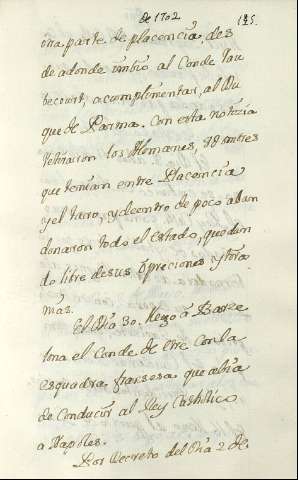 de 1702
125.
otra parte de placencia, des
de adonde imbio al Conde Tau
becourt, acomplimentar, al Du
que de Parma. Con esta notizia
retiraron los Alemanes, 98 ombres
que tenian entre Placencia
y el taro, y dentro de poco aban
donaron todo el estado, quedan
do libre de sus opreciones y tira
nias.
El Dia 30. llegó à Barze
lona el Conde de Etre con la
esquadra francesa que abia
de Conducir al Rey Catholico
a Napoles.
Por Decreto del Dia 2 de